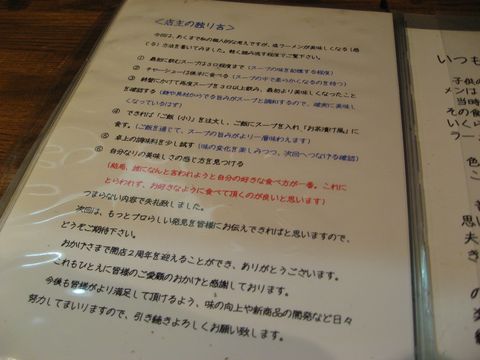 ＜店主の独り言＞
今回は、あくまで私の個人的な考えですが、塩ラーメンが美味しくなる（感じる）方法を書いてみました。軽く読み流す程度でご覧下さい。
① 最初に飲むスープは３口程度まで（スープの味を記憶する程度）
② チャーシューは後半に食べる（スープの中で柔らかくなるのを待つ）
③ 野菜にかけて再度スープを３口以上飲み、最初より美味しくなったこと
を確認する（麺や具材からでる旨みがスープと調和するので、確実に美味し
くなっているはず）
④ できれば「ご飯（小）」を注文し、ご飯にスープを入れ「お茶漬け風」に
食す。（ご飯を通じて、スープの旨みがより一層味わえます）
⑤ 卓上の調味料を少し試す（味の変化を楽しみつつ、次回へつなげる確認）
⑥ 自分なりの美味しさの感じ方を見つける
（結局、誰になんと言われようと自分の好きな食べ方が一番。これに
とらわれず、お好きなように食べて頂くのが良いと思います）
つまらない内容で失礼致しました。
次回は、もっとプロらしい発見を皆様にお伝えできればと思いますので、
どうぞご期待下さい。
おかげさまで開店２周年を迎えることができ、ありがとうございます。
これもひとえに皆様のご愛顧のおかげと感謝しております。
今後も皆様がより満足して頂けるよう、味の向上や新商品の開発など日々
努力してまいりますので、引き続きよろしくお願い致します。
いつも
子供の
メンは
当時
その食
いくら
ラー